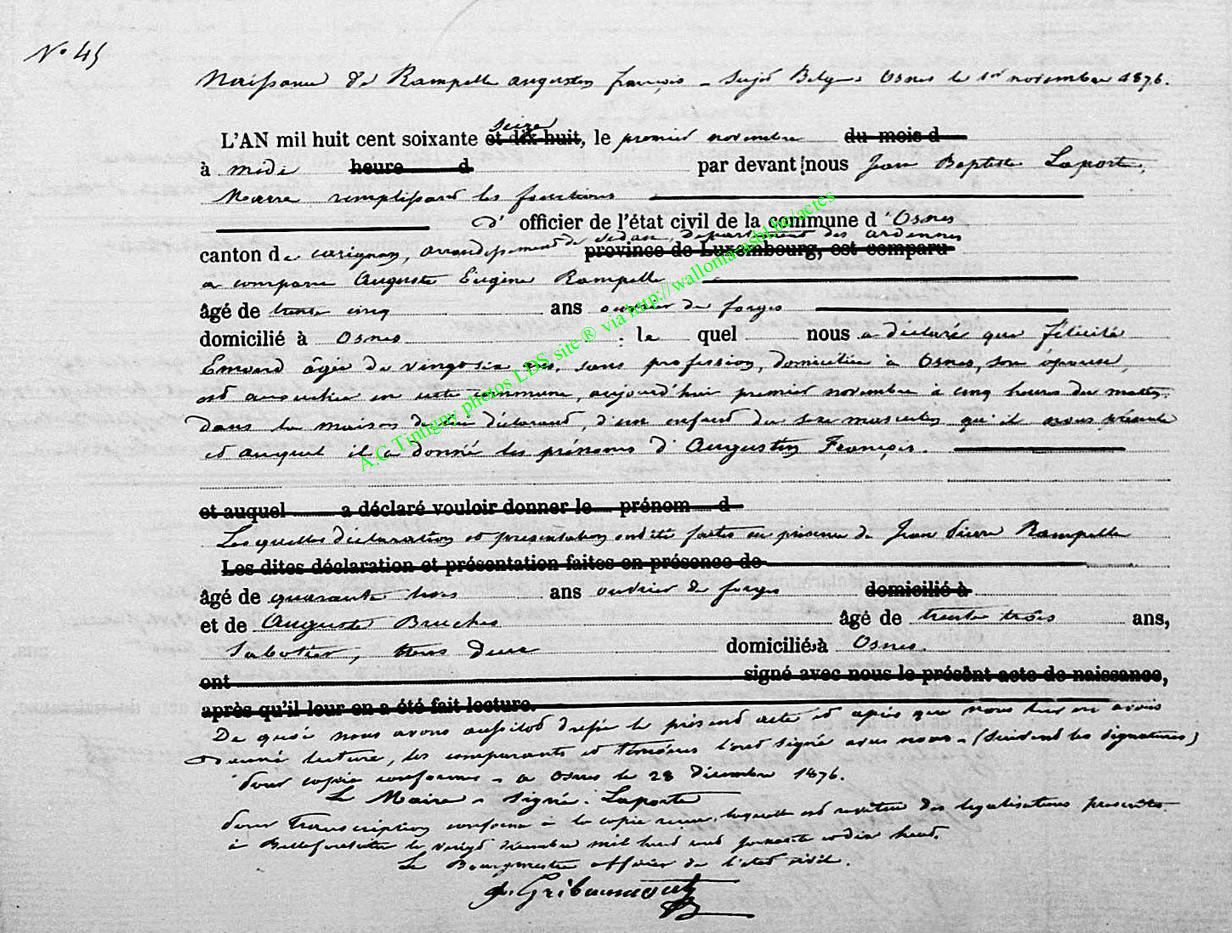 N° 45
Naissance de Rampelle augustin françois _ Sujet Belge Osnes le 1er novembre 1876.
seize
L'AN mil huit cent soixante et dix-huit, le premier novembre du mois d
à midi heure d par devant nous Jean Baptiste Laporte,
Maire remplissant les fonctions
d' officier de l'état civil de la commune d'Osnes
canton de carignan, arrondissement de Sedan, département des ardennes province de Luxembourg, est comparu
a comparu Auguste Eugène Rampelle
âgé de trente cinq ans ouvrier de forges
domicilié à Osnes : le quel nous a déclaré que félicité
Emond âgée de vingt six ans, sans profession, domiciliée à Osnes, son épouse,
est accouchée en cette commune, aujourd'hui premier novembre à cinq heures du matin
dans la maison de lui déclarant, d'un enfant du sexe masculin qu'il nous présente
et auquel il a donné les prénoms d'Augustin François.
et auquel a déclaré vouloir donner le prénom d
Lesquelles déclaration et présentation ont été faites en présence de Jean Pierre Rampelle
Les dites déclaration et présentation faites en présence de
âgé de quarante trois ans ouvrier de forges domicilié à
et de Auguste Bruches âgé de trente trois ans,
Sabotier, tous deux domicilié à Osnes.
ont signé avec nous le présent acte de naissance,
après qu'il leur en a été fait lecture.
De quoi nous avons aussitôt dressé le présent acte et après que nous leur en avons
donné lecture, les comparants et témoins l'ont signé avec nous _ (Suivent les signatures)
Pour copie conforme _ a Osnes le 28 décembre 1876.
Le Maire _ Signé : Laporte
Pour Transcription conforme à la copie reçue, laquelle est revêtue des légalisations prescrites
à Bellefontaine le vingt décembre mil huit cent soixante et dix huit.
Le Bourgmestre officier de l'état civil.
A.C Tintigny photos LDS site ® via http://wallonica.asbl.be/actes